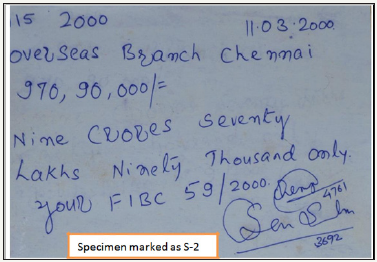 15 2000
11.03.2000
overseas Branch Chennai
970,90,000/=
Nine Crores Seventy
Lakhs Ninety Thousand only.
your FIBC 59/2000.
4761
3692
Specimen marked as S-2